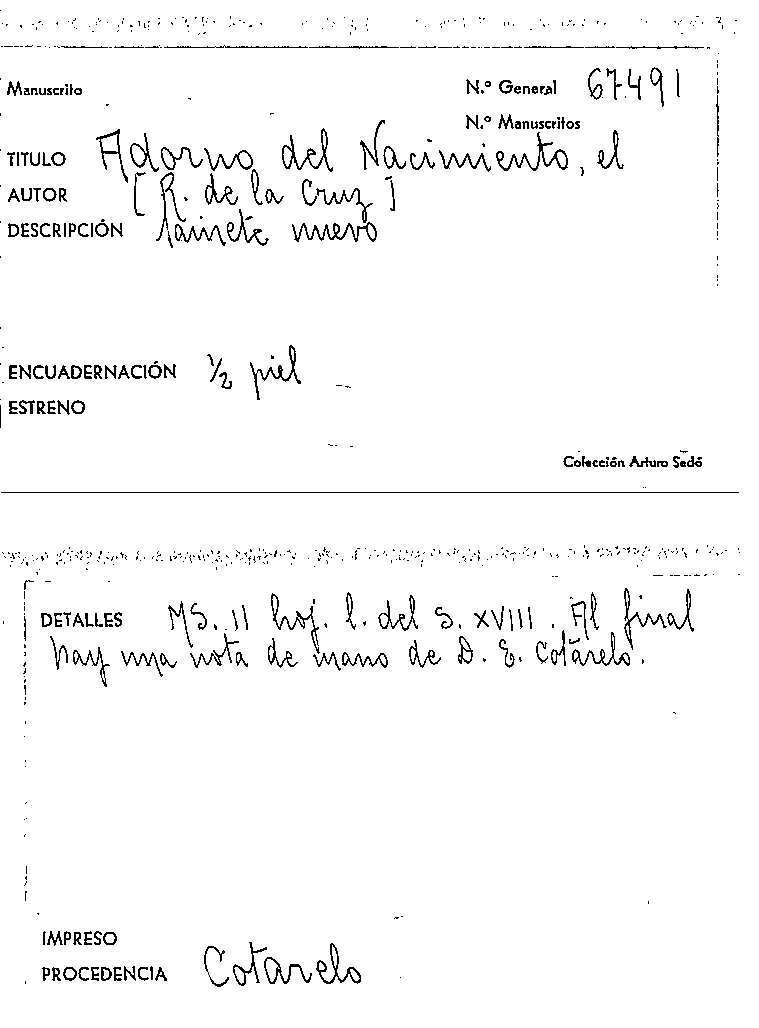 Manuscrito N.º General 67491
N.º Manuscritos
TITULO Adorno del Nacimiento, el
AUTOR [R. de la Cruz]
DESCRIPCIÓN Sainete nuevo
ENCUADERNACIÓN ½ piel
ESTRENO
Colección Arturo Sedó
DETALLES MS. 11 hoj. l. del s. XVIII. Al final
hay una nota de mano de D. E. Cotarelo.
IMPRESO
PROCEDENCIA Cotarelo